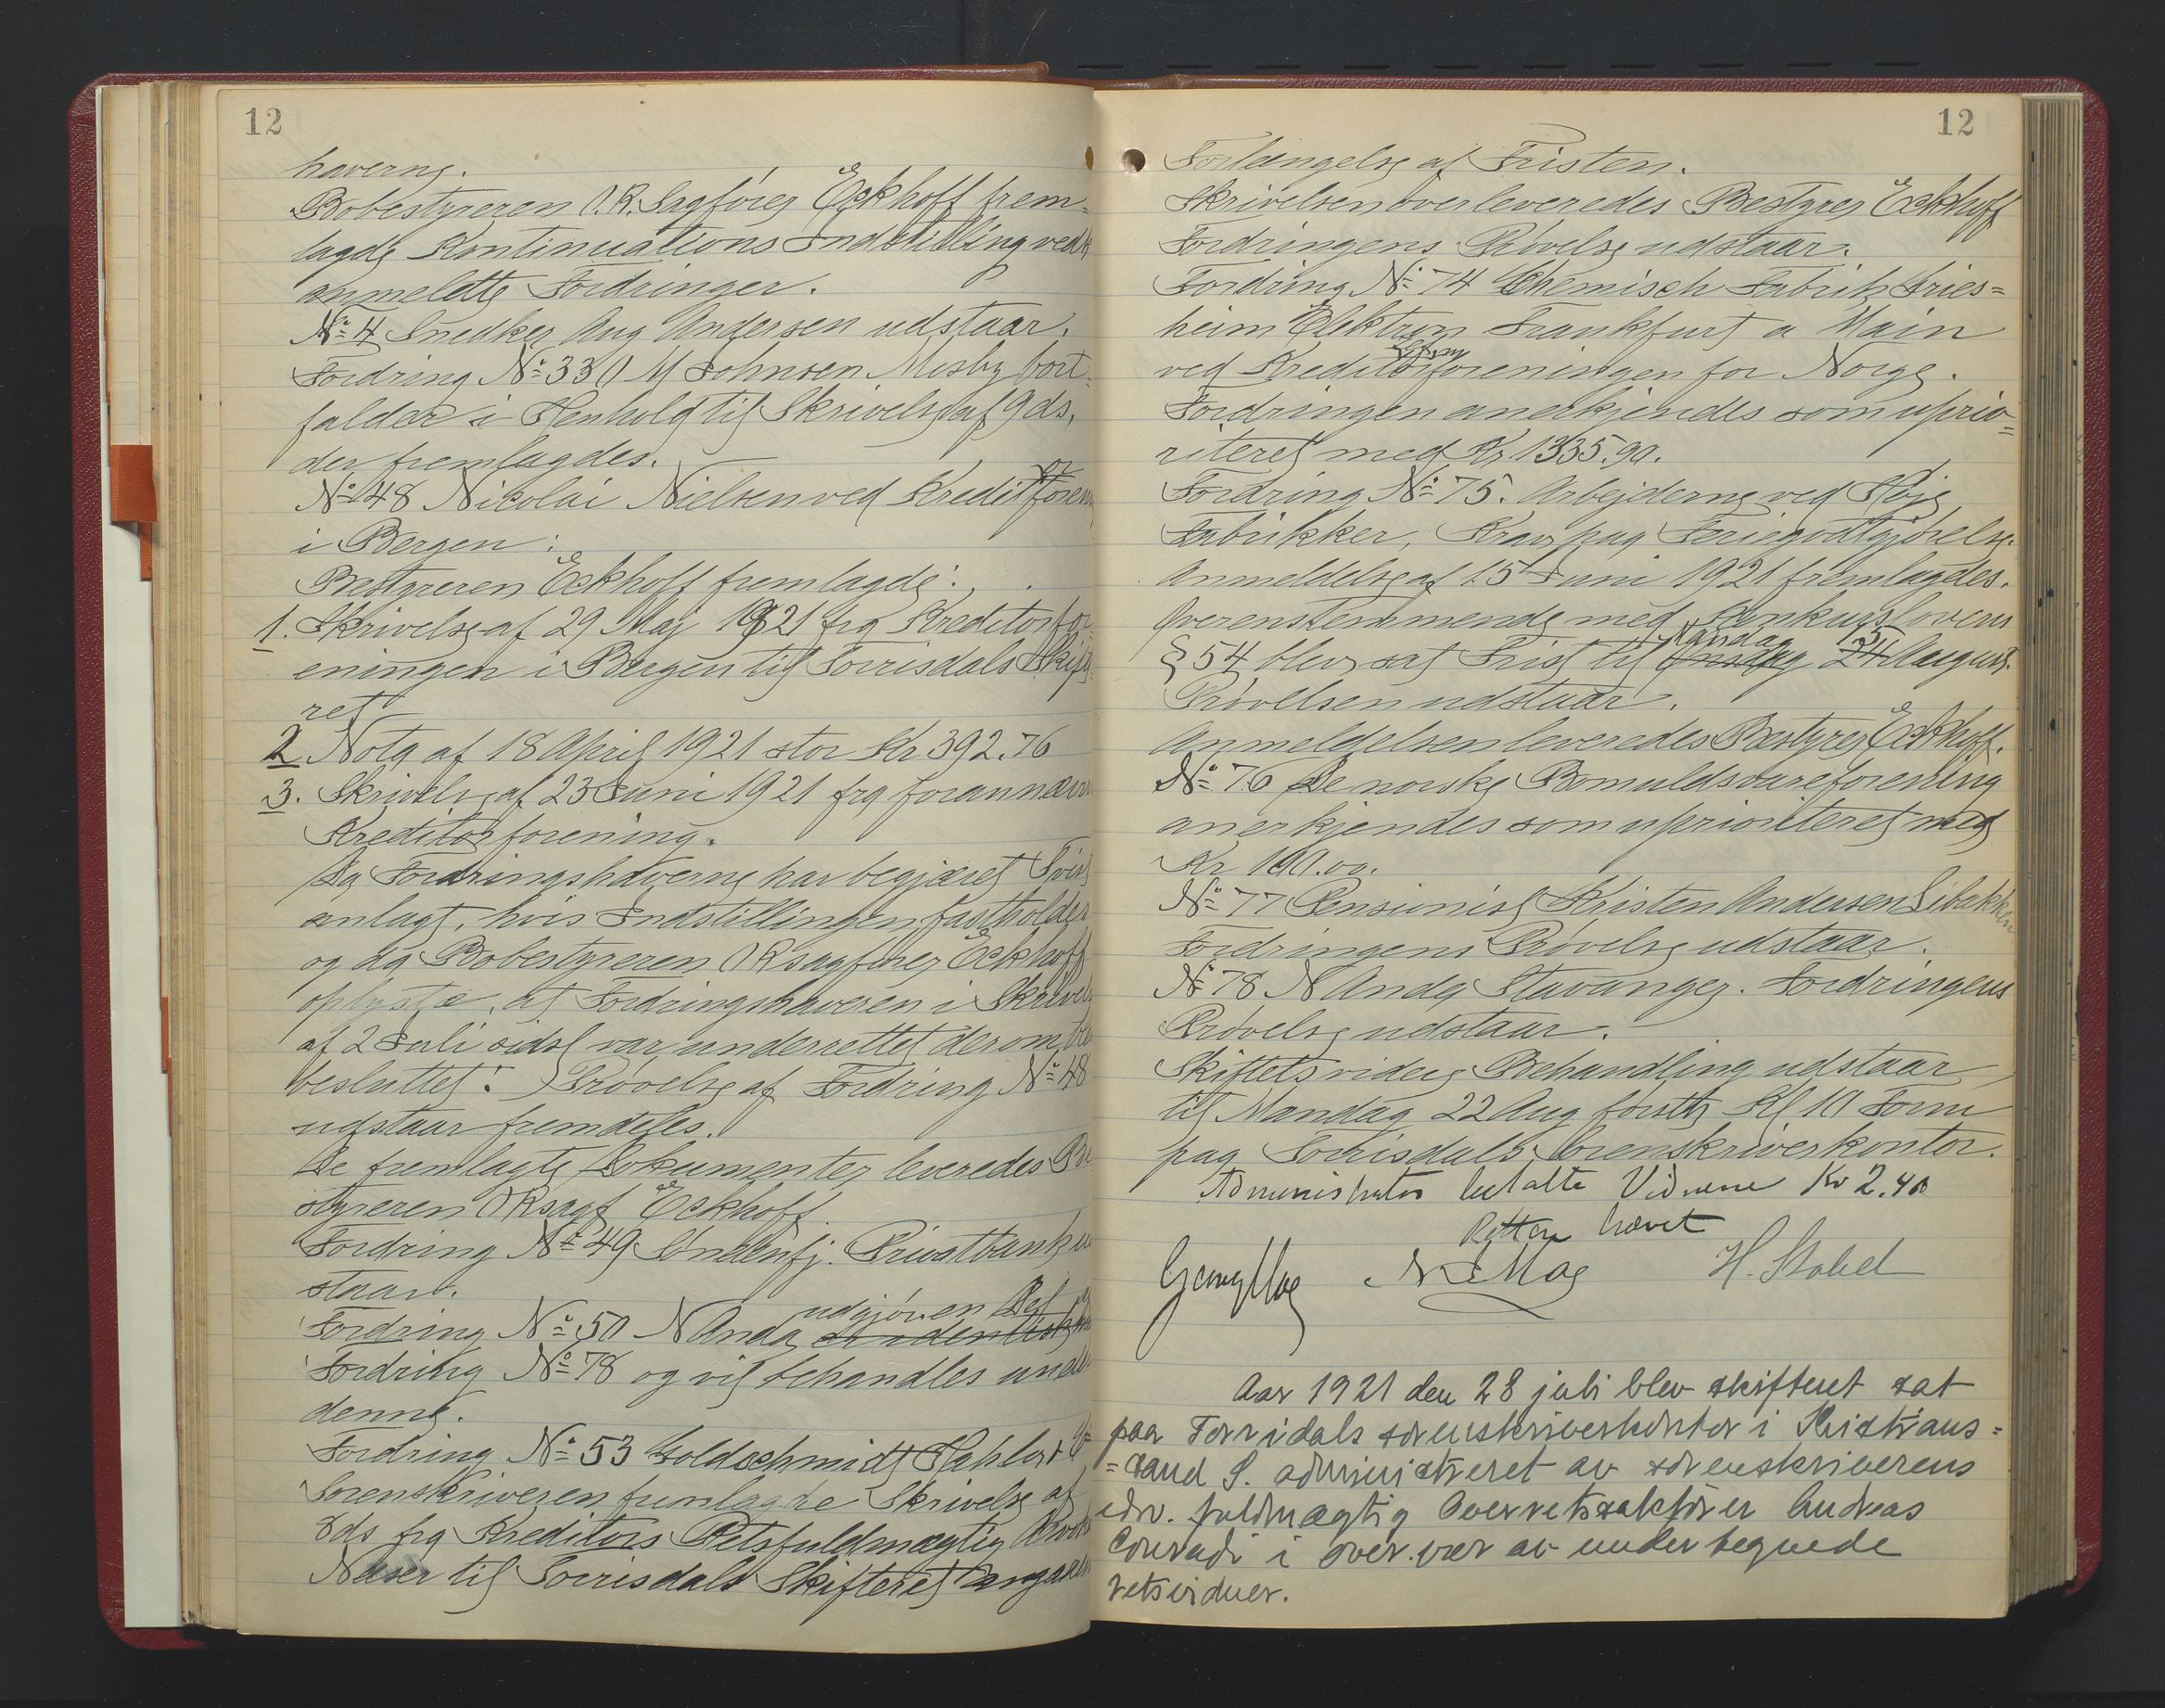 12
haverne.
Bobestyreren O.R.Sagfører Eckhoff frem-
lagde Kontinuations Indstilling vedk
anmeldte Fordringer.
No 4 Snedker Aug Andersen udstaar.
Fordring No 33 O M Johnsen Mosby bort-
falder i Henhold til Skrivelse af 9 ds,
der fremlagdes.
No 48 Nicolai Nielsen ved Kreditorforen
i Bergen:
Bestyreren Eckhoff fremlagde:
1. Skrivelse af 29 Maj 1921 fra Kreditorfor-
eningen i Bergen til Torrisdals Skifte
ret
2 Nota af 18 April 1921 stor Kr 392.76
3. Skrivelse af 23 Juni 1921 fra forannævn
Kreditorforening.
Da Fordringshaverne har begjæret Tvist
anlagt, hvis Indstillingen fastholdes
og da Bobestyreren ORsagfører Eckhoff
oplyste, at Fordringshaveren i Skrivels
af 2 Juli sidst var underrettet derom, blev
besluttet: Prøvelse af Fordring No 48
udstaar fremdeles.
De fremlagte Dokumenter leveredes Be
styreren ORsagf Eckhoff.
Fordring No 49 Søndenfj. Privatbank u
staar.
Fordring No 50 N Anda udgjør en Del
Fordring No 78 og vil behandles under
denne.
Fordring No 53 Goldschmidt Hahlo
Sorenskriveren fremlagde Skrivelse af
8ds fra Kreditors Retsfuldmægtig
Næser til Torrisdals Skifteret angaaen
12
Forlængelse af Fristen.
Skrivelsen overleveredes Bestyrer Eckhoff
Fordringens Prøvelse udstaar.
Fordring No 74 Chemisch Fabrik Gries=
heim Elektron Frankfurt a Main
ved Kreditorforeningen for Norge.
Fordringen anerkjendes som uprio=
riteret med Kr 1335.90.
Fordring No 75. Arbejderne ved Høje
Fabrikker, Krav paa Feriegodtgjørelse.
Anmeldelse af 15 Juni 1921 fremlagdes.
Overensstemmende med Konkurslovens
§ 54 blev sat Frist til Mandag 15 August.
Prøvelsen udstaar.
Anmeldelsen leveredes Bestyrer Eckhoff.
No 76 De norske Bomuldsvareforening
anerkjendes som uprioriteret med
Kr 100.00.
No 77 Pensionist Kristen Andersen Libakken
Fordringens Prøvelse udstaar.
No 78 N Anda Stavanger. Fordringens
Prøvelse udstaar.
Skiftets videre Behandling udstaar
til Mandag 22 Aug førstk Kl 10 Form
paa Torrisdals Sorenskriverkontor.
Administrator betalte Vidnene Kr 2.40
Retten hævet
H. Stabel
Aar 1921 den 28 juli blev skifteret sat
paa Torridals sorenskriverkontor i Kristians=
=sand S. administreret av sorenskriverens
edsv. fuldmægtig Overretssakfører Andreas
Conradi i overvær av undertegnede
retsvidner.